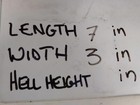 LENGTH 7 in
WIDTH 3 in
HELL HEIGHT in